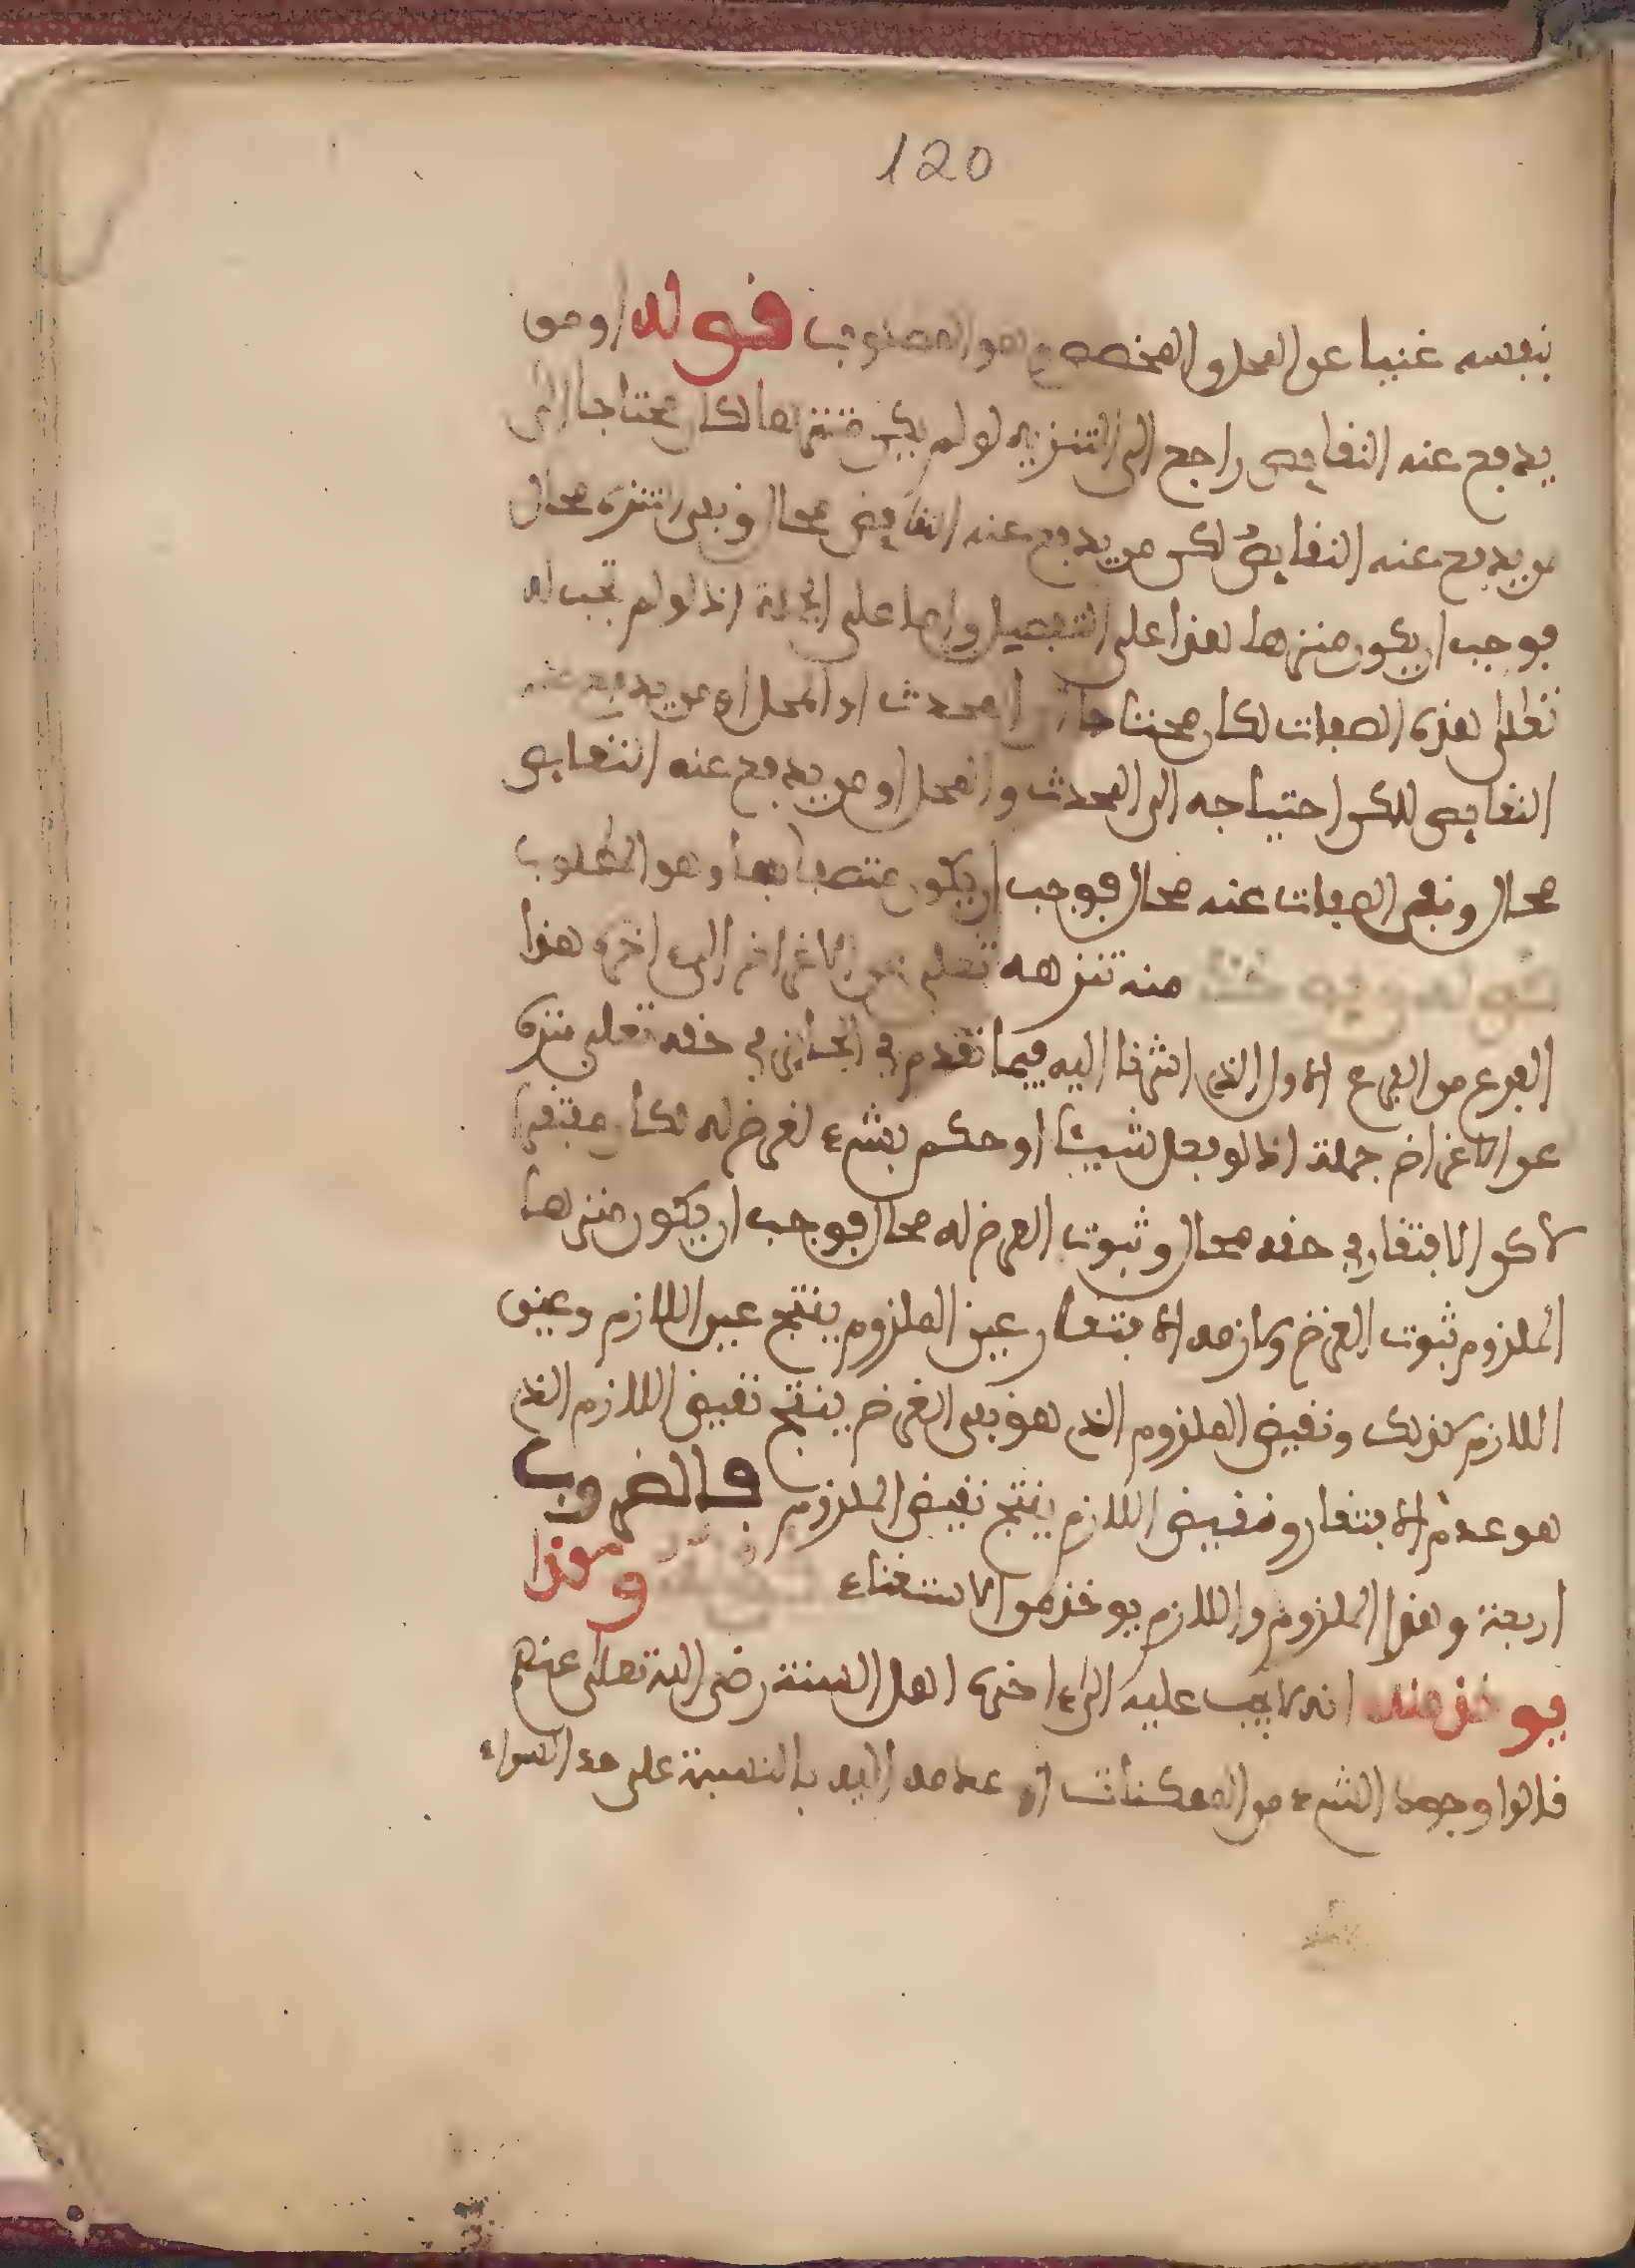 120
بنفسه غنيا عن المحل والمخصص وهو المطلوب قوله او من
يدفع عنه النقايص راجع الى التنزيه لو لم يكن منزها لكان محتاجا الى
من يدفع عنه النقايص لكن من يدفع عنه النقايص محال ونفي التنزه محال
فوجب ان يكون منزها هذا على التفصيل واما على الجملة اذ لو لم تجب له
تعلى هذه الصفات لكان محتاجا الى المحدث او المحل او من يدفع عنه
النقايص لكن احتياجه الى المحدث والمحل او من يدفع عنه النقايص
محال ونفي الصفات عنه محال فوجب ان يكون متصفا بها وهو المطلوب
قوله ويوخذ منه تنزهه تعلى عن الاغراض الى اخره هذا
الفرع من الفرع الاول الذي اشرنا اليه فيما تقدم في الجايز في حقه تعلى تنزه
عن الاغراض جملة اذ لو فعل شيئا او حكم بشيء لغرض له لكان مفتقرا
لاكن الافتقار في حقه محال وثبوت الغرض له محال فوجب ان يكون منزها
الملزوم ثبوت الغرض ولازمه الافتقار عين الملزوم ينتج عين اللازم وعين
اللازم كذلك ونقيض الملزوم الذي هو نفي الغرض ينتج نقيض اللازم الذي
هو عدم الافتقار ونقيض اللازم ينتج نقيض الملزوم فالضروب
اربعة وهذا الملزوم واللازم يوخذ من الاستغناء وكذا
يوخذ منه انه لا يجب عليه الى اخره اهل السنة رضي الله تعلى عنهم
قالوا وجود الشيء من الممكنات او عدمه اليه بالنسبة على حد السواء